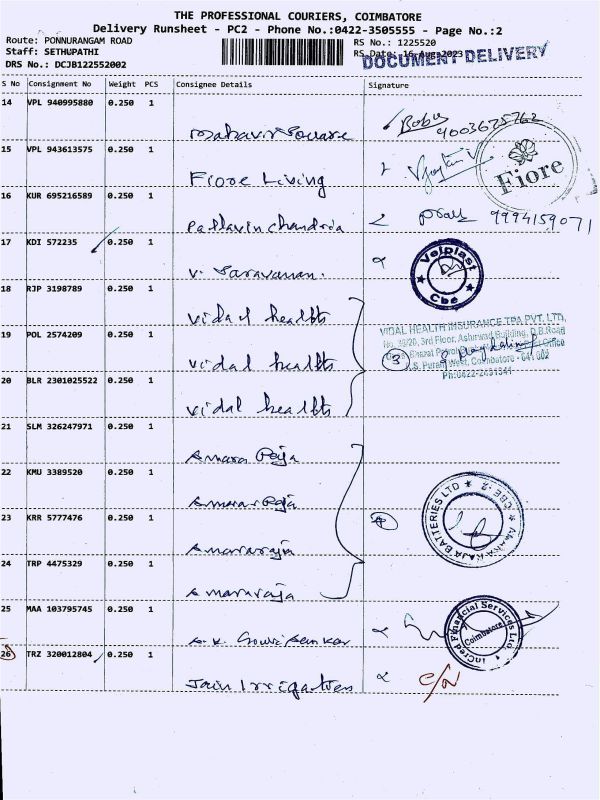 THE PROFESSIONAL COURIERS, COIMBATORE
Delivery Runsheet - PC2 - Phone No.:0422-3505555 - Page No.:2
Route: PONNURANGAM ROAD
Staff: SETHUPATHI
DRS No.: DCJB122552002
RS No.: 1225520
RS Date: 16-Aug-2023
DOCUMENT DELIVERY
S No Consignment No Weight PCS Consignee Details Signature
14 VPL 940995880 0.250 1
Mahavir Square Babu
15 VPL 943613575 0.250 1
Fiore Living Fiore
16 KUR 695216589 0.250 1
Pallavin chandria 9994159071
17 KDI 572235 0.250 1
V. Saravanan. Velplast Cbe
18 RJP 3198789 0.250 1
Vidal healths
19 POL 2574209 0.250 1
VIDAL HEALTH INSURANCE TPA PVT. LTD,
3rd Floor, Building, D.B.Road
Vidal healths 3
R.S. Puram West, Coimbatore - 641 002
20 BLR 2301025522 0.250 1
Vidal healths
21 SLM 326247971 0.250 1
Amara Raja
22 KMU 3389520 0.250 1
Amara Raja
23 KRR 5777476 0.250 1
Amararaja 4
AMARA RAJA BATTERIES LTD ★ CBE-2 ★
24 TRP 4475329 0.250 1
Amararaja
25 MAA 103795745 0.250 1
InCred Financial Services Ltd. Coimbatore
26 TRZ 320012804 0.250 1
Jain Irrigation